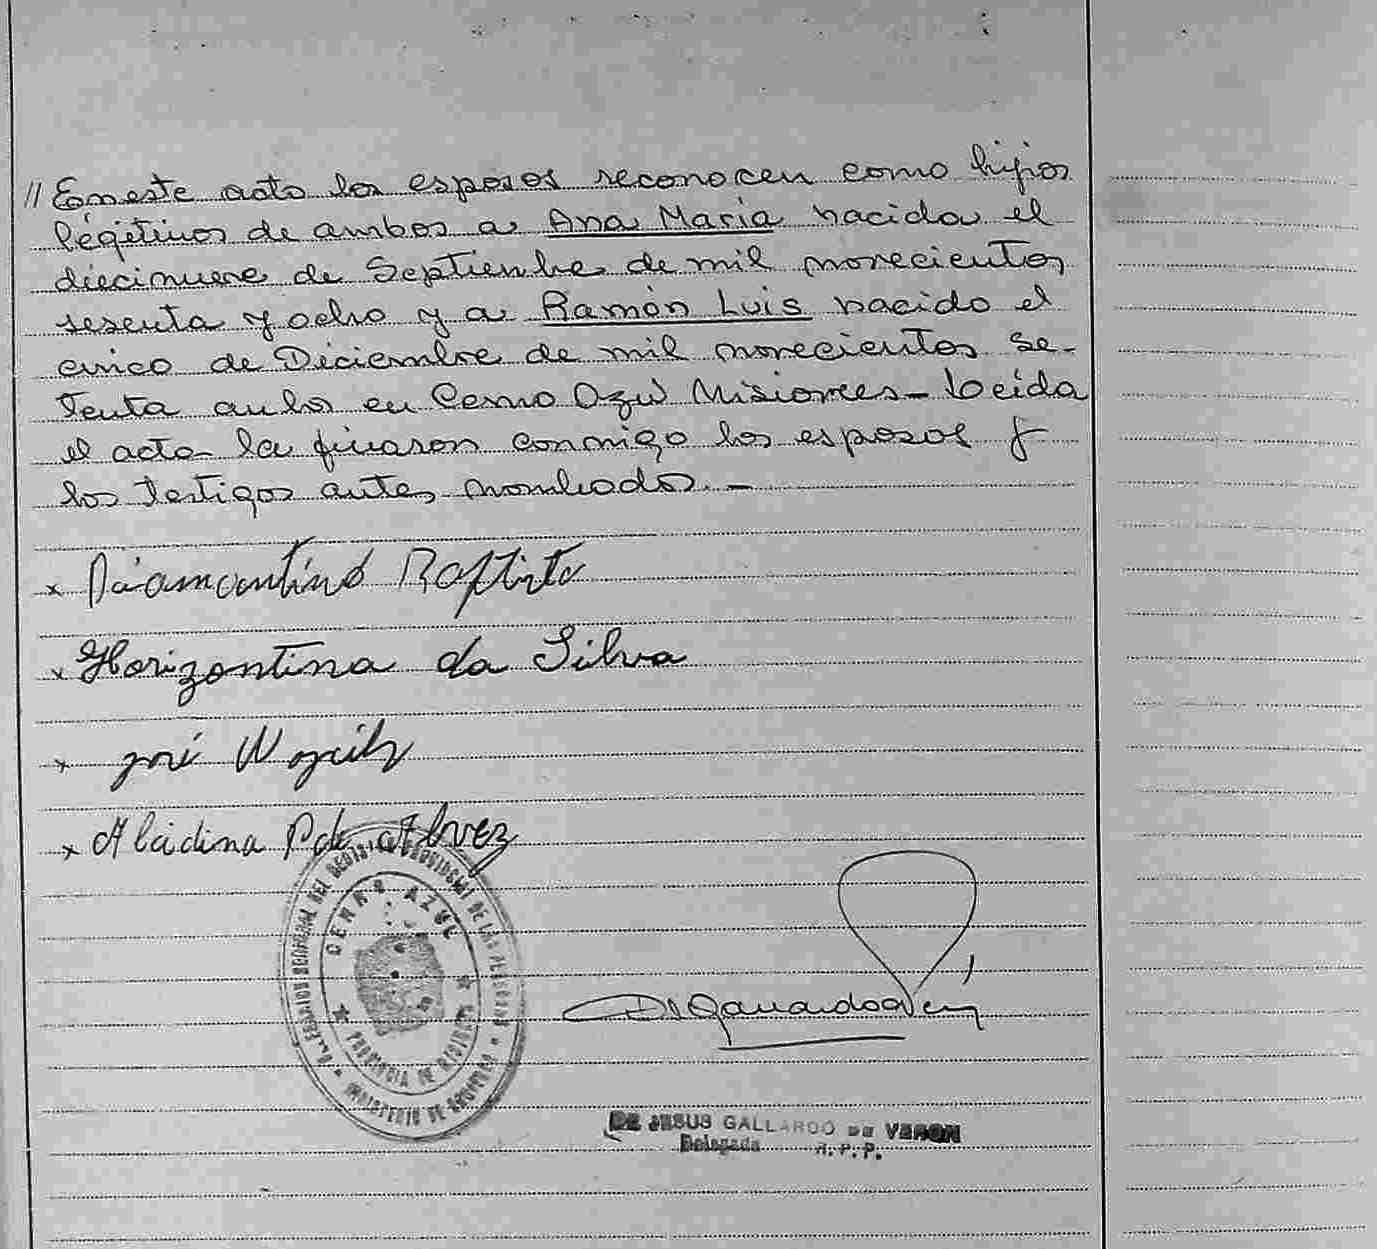 // En este acto los esposos reconocen como hijos
légitimos de ambos a Ana María nacida el
diecinueve de Septiembre de mil novecientos
sesenta y ocho y a Ramón Luis nacido el
cinco de Diciembre de mil novecientos se-
tenta ambos en Cerro Azul Misiones - Leida
el acta la firaron conmigo los esposos y
los testigos antes nombrados. -
x Diamantino Baptista
x Horizontina da Silva
x José
x Aladina P de Alvez
CERRO AZUL
PROVINCIA DE MISIONES
MINISTERIO DE
DE JESUS GALLARDO DE VERON
Delegada R.P.P.